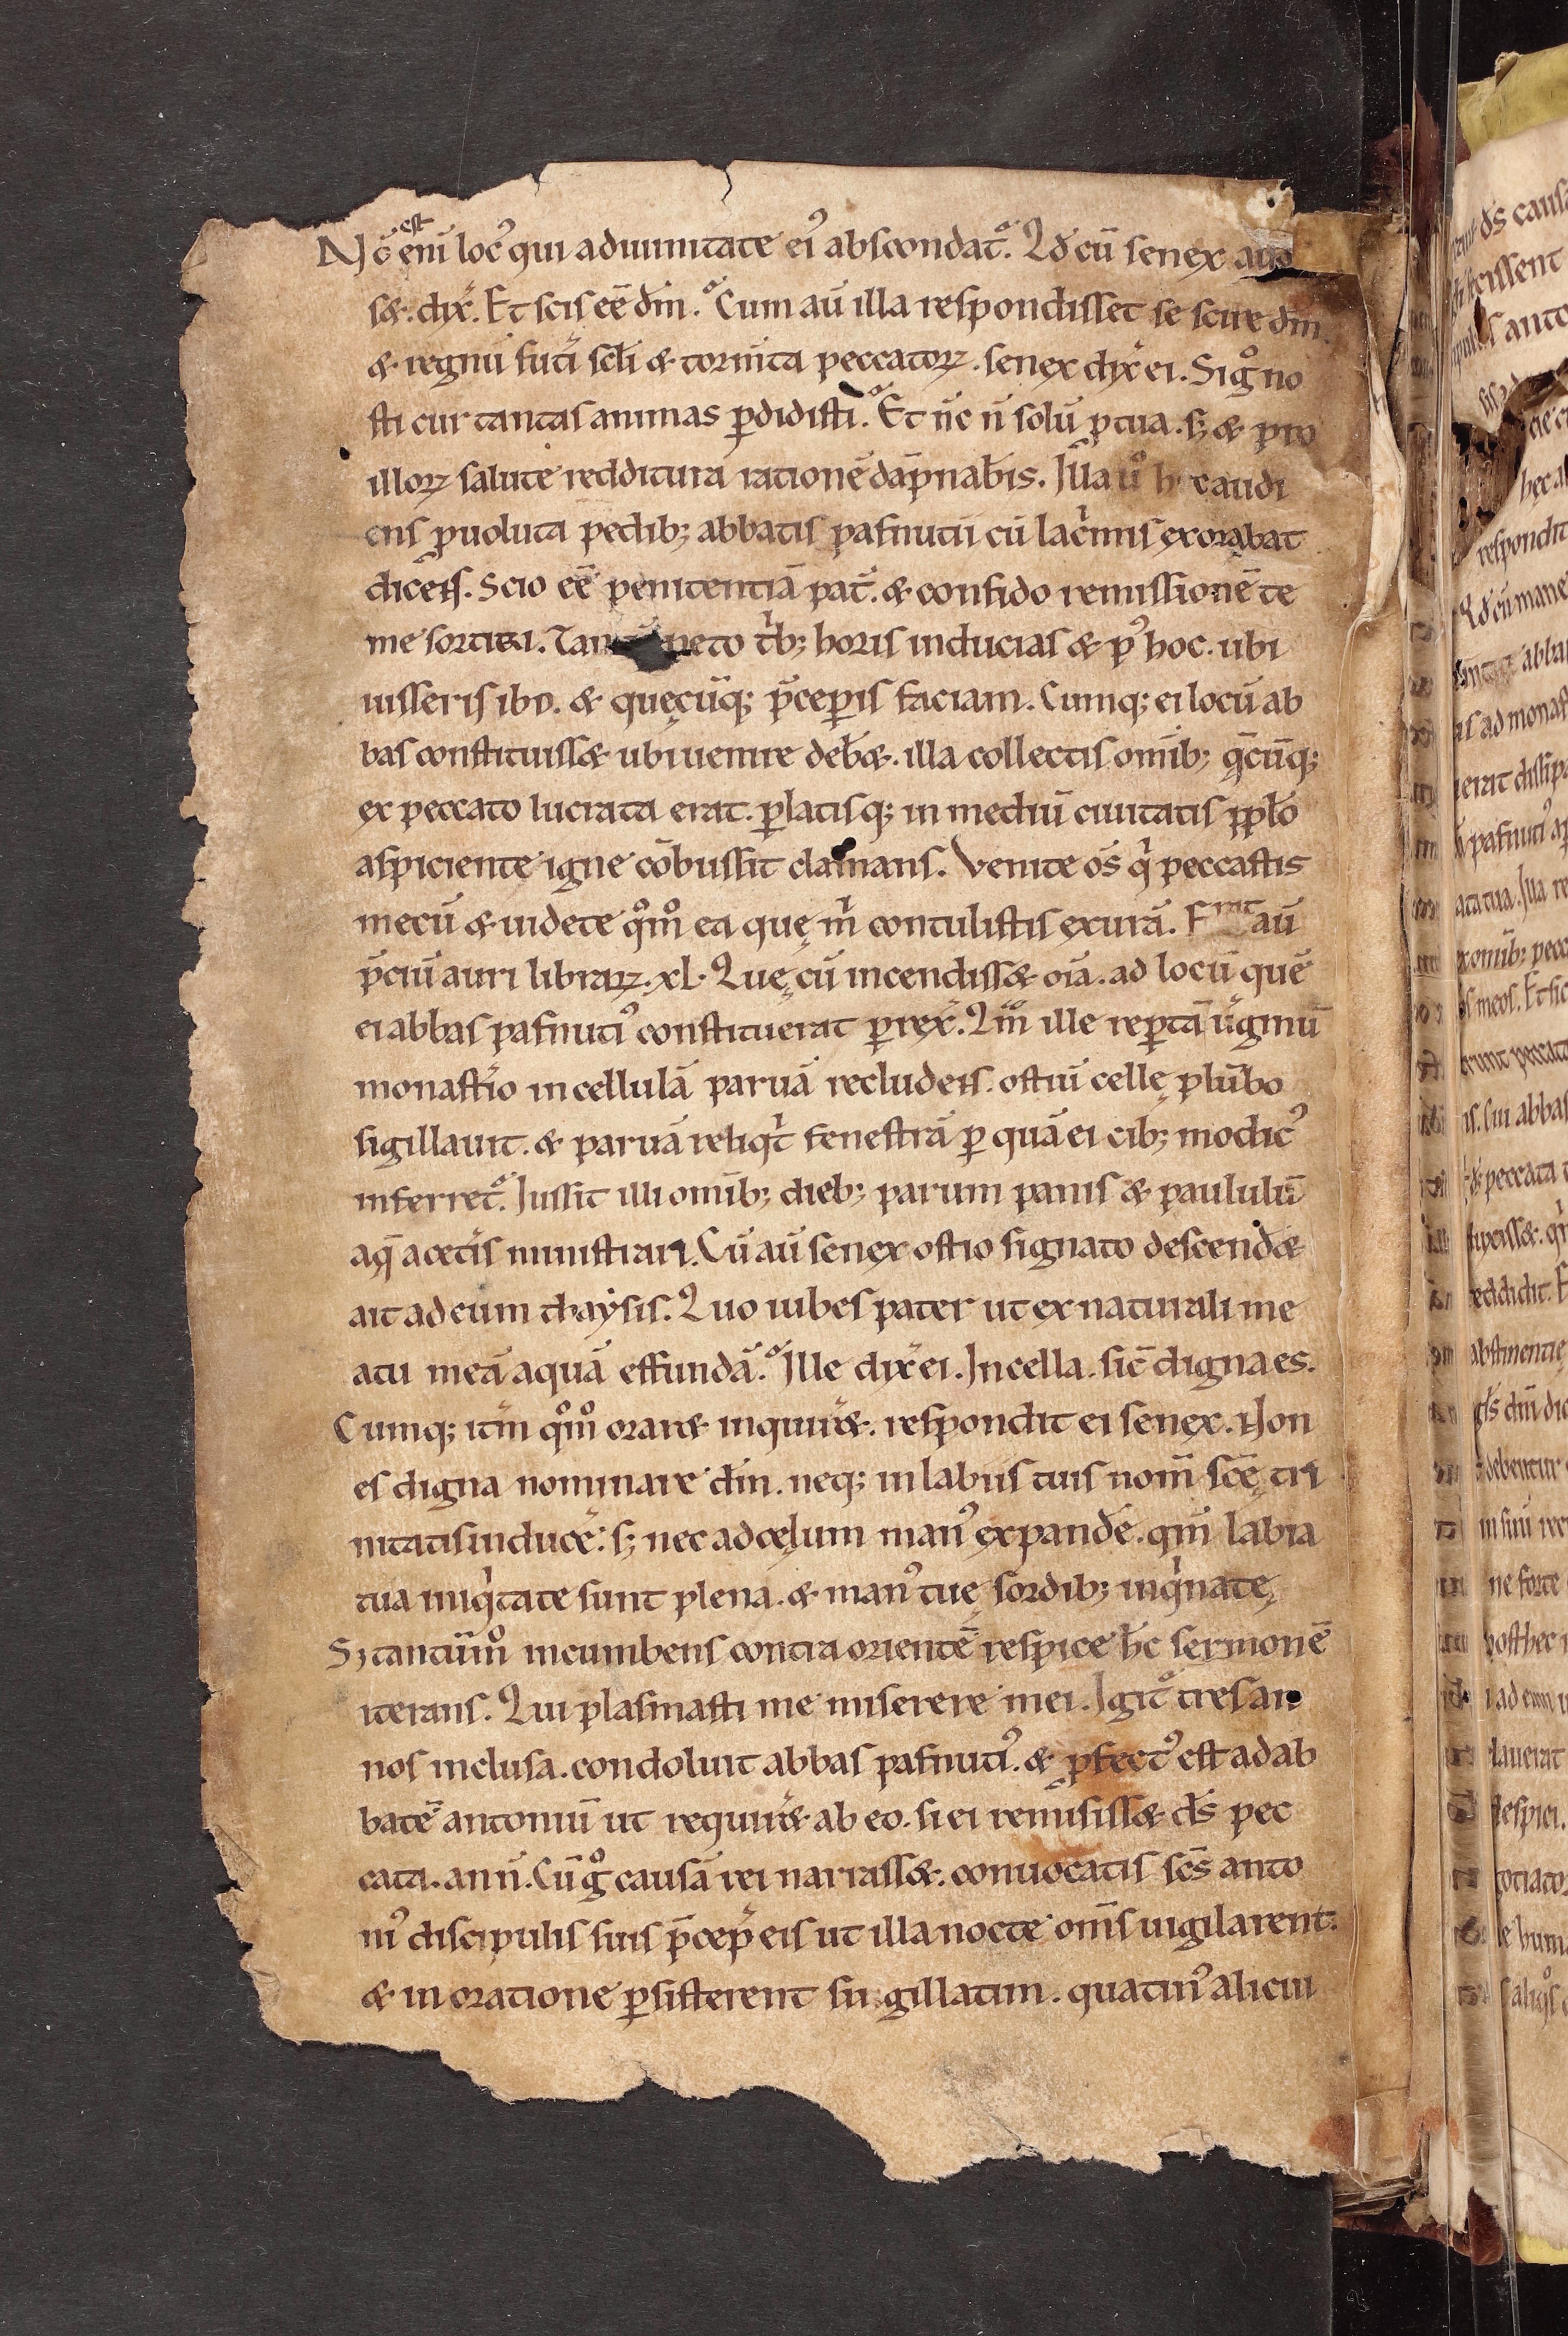 Nō est eni locꝰ qui adiuinitate eiꝰ abscondat᷑. Qd cū senex au
sæ. dix̾. Et scis eē dm̄. Cum aū illa respondisset se scire dm̄
& regnū futi̾ scl̄i & torm̄ta peccatoꝝ. senex dix̾ ei. Si gͦ no
sti cur tantas animas ꝑdidisti. Et nc̄ n̄ solū ꝓ tua. sꝫ & pro
illoꝝ salute redditura rationē dāpnab̄is. Illa uͦ h audi
ens ꝓuoluta pedibꝫ abbatis pafnutii cū lacͥmis exorabat
dicens. Scio eē penitentiā pat̾. & confido remissionē te
me sortiri. Tan peto tͥbꝫ horis inducias & pꝰ hoc. ubi
iusseris ibo. & quęcūqꝫ p̄ceꝑis faciam. Cumqꝫ ei locū ab
bas constituissæ ubi uenire deb̄æ. illa collectis omībꝫ q̄cūqꝫ
ex peccato lucrata erat. ꝑlatisqꝫ in mediū ciuitatis ppl̄o
aspiciente igne cōbussit clamans. Venite oms̄ qͥ peccastis
mecū & uidete qͦmͦ ea quę mͥ contulistis exurā. Erat aū
p̄ciū auri libraꝝ. xl. Quę cū incendissæ oīa. ad locū quē
ei abbas pafnutiꝰ constituerat ꝑrex̾. Qm̄ͦ ille reꝑtā uͥginū
monast̾io in cellulā paruā recludens. ostiū cellę plūbo
sigillauit. & paruā reliqͥt fenestrā ꝑ quā ei cibꝫ modicꝰ
inferret᷑. Jussit illi omībꝫ diebꝫ parum panis & paululū
aq̄ acet̾is ministrari. Cū aū senex ostio signato descendæ
ait ad eum thaysis. Quo iubes pater ut ex naturali me
atu meā aquā effundā. Ille dix̾ ei. In cella. sic̄ digna es.
Cumqꝫ it̾m qͦmͦ oraræ inquir̾æ. respondit ei senex. Non
es digna nominare dm̄. neqꝫ in labiis tuis nom̄ scę̄ tri
nitatis induce̾: sꝫ nec ad cęlum manꝰ expande̾. qm̄ labia
tua iniqͥtate sunt plena. & manꝰ tuę sordibꝫ inqͥnatę
Sꝫ tantūmͦ incumbens contra orientē respice hc̄ sermonē
iterans. Qui plasmasti me miserere mei. Igit᷑ tres an
nos inclusa. condoluit abbas pafnutiꝰ. & ꝓfectꝰ est ad ab
batē antoniū ut requir̾æ ab eo. si ei remisissæ ds̄ pec
cata. an n̄. Cū gͦ causā rei narrassæ. conuocatis scs̄ anto
niꝰ discipulis suis p̄cep̾ eis ut illa nocte oms̄ uigilarent:
& in oratione ꝑsisterent singillatim. quatinꝰ alicui